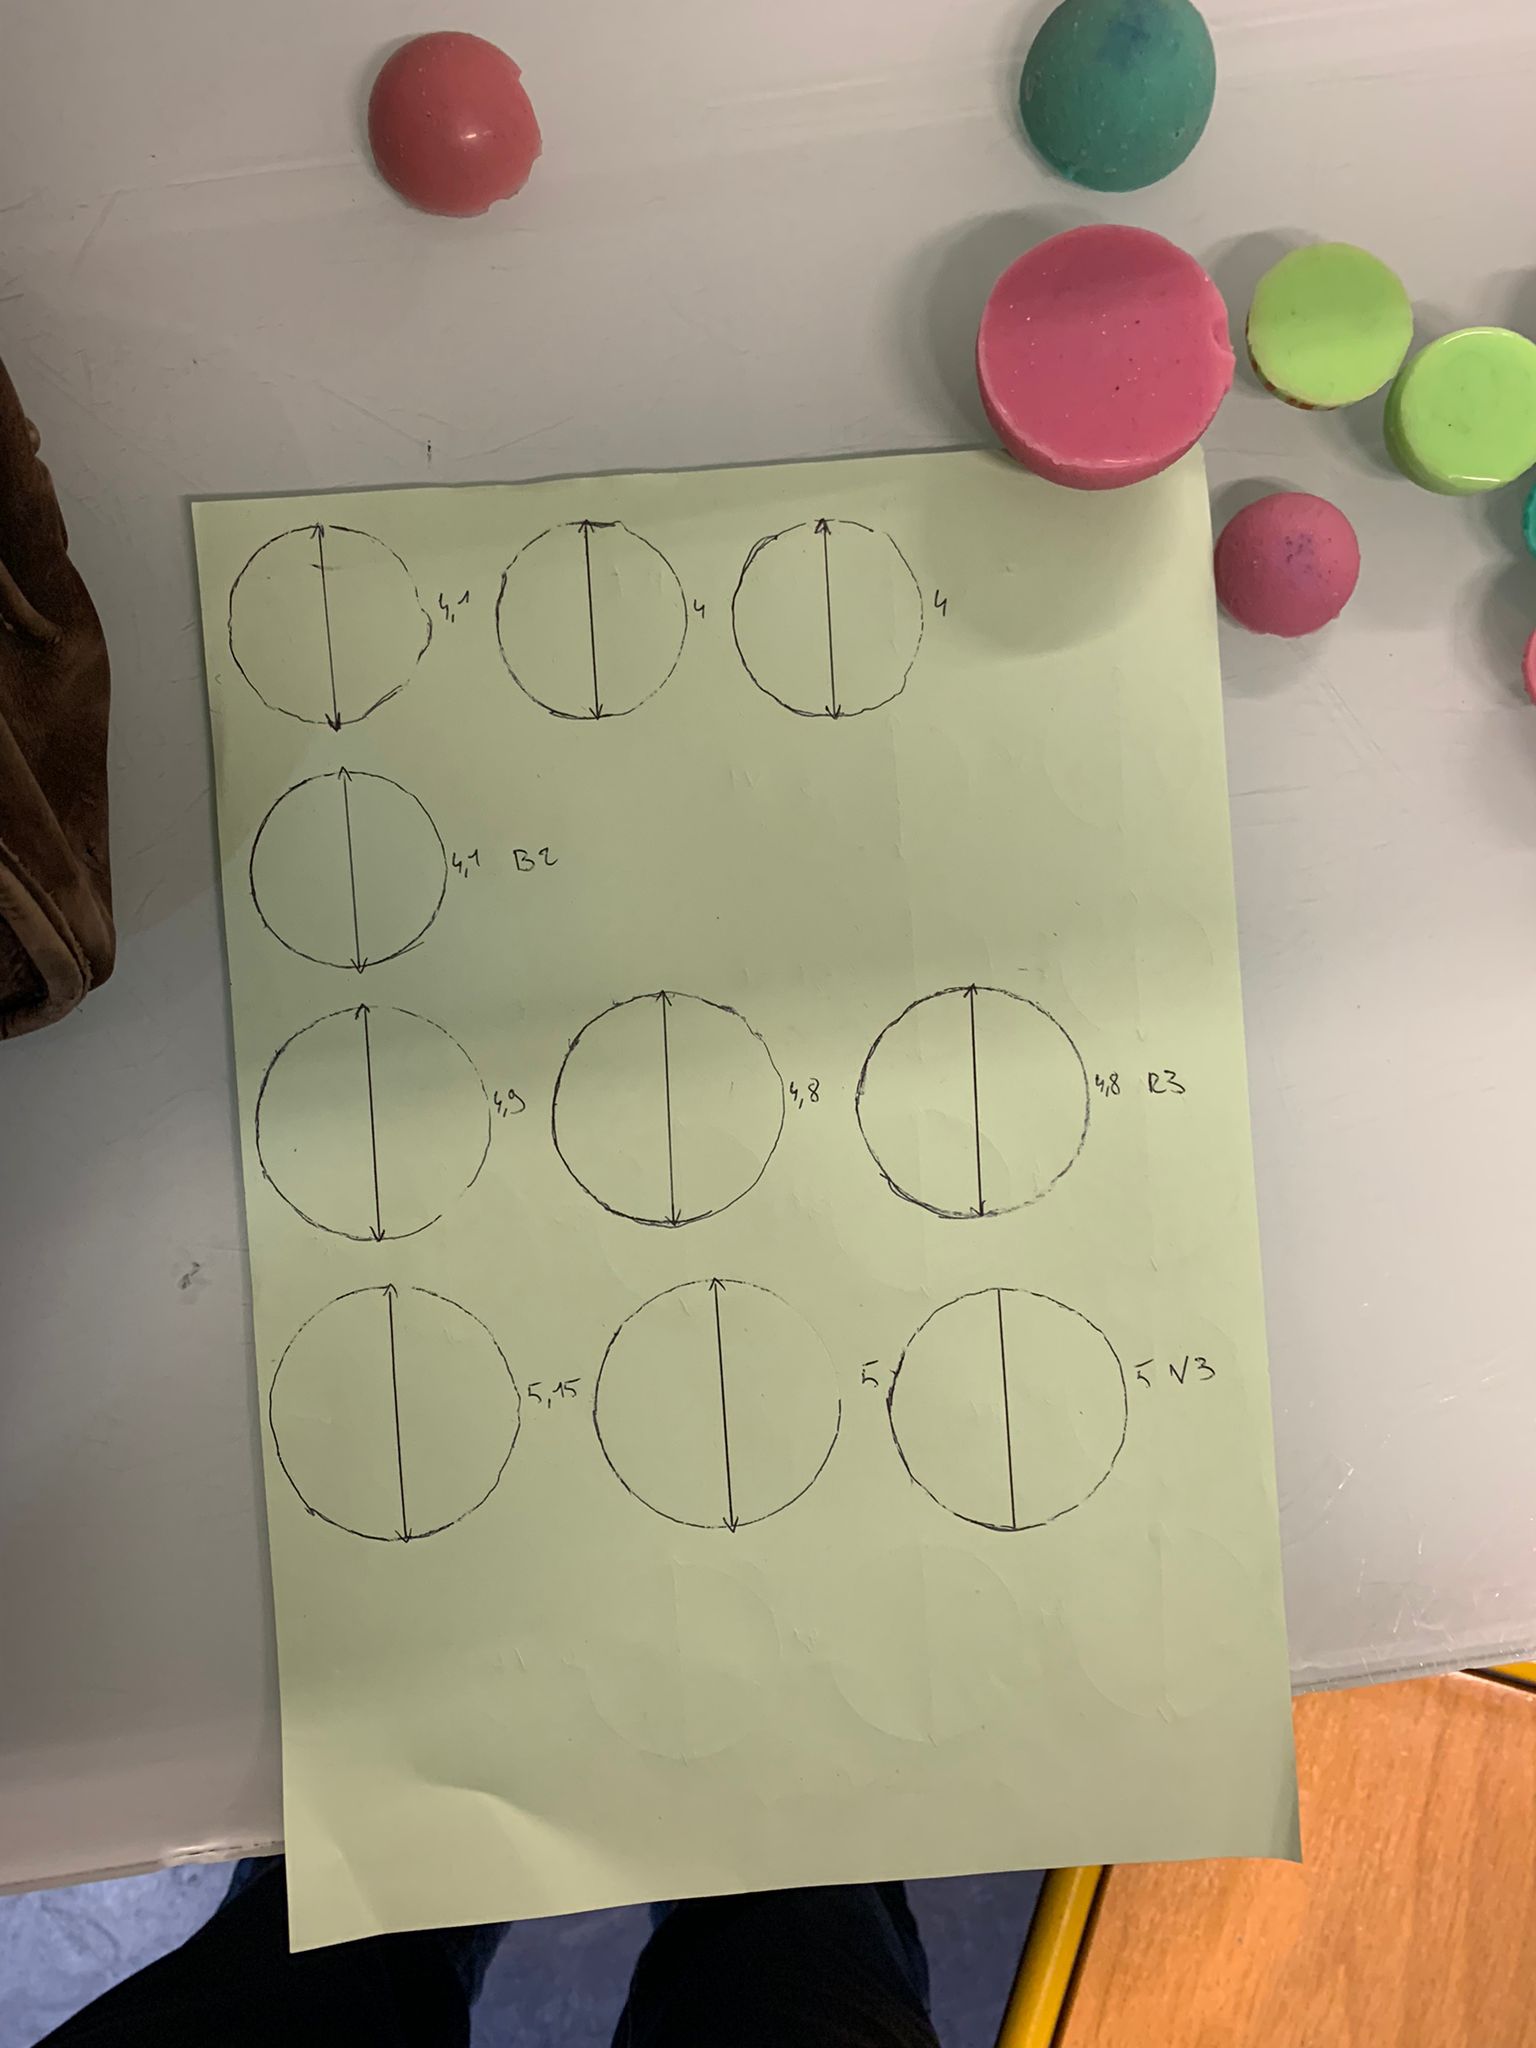 4,1 4 4
4,1 B2
4,9 4,8 4,8 R3
5,15 5 5 V3